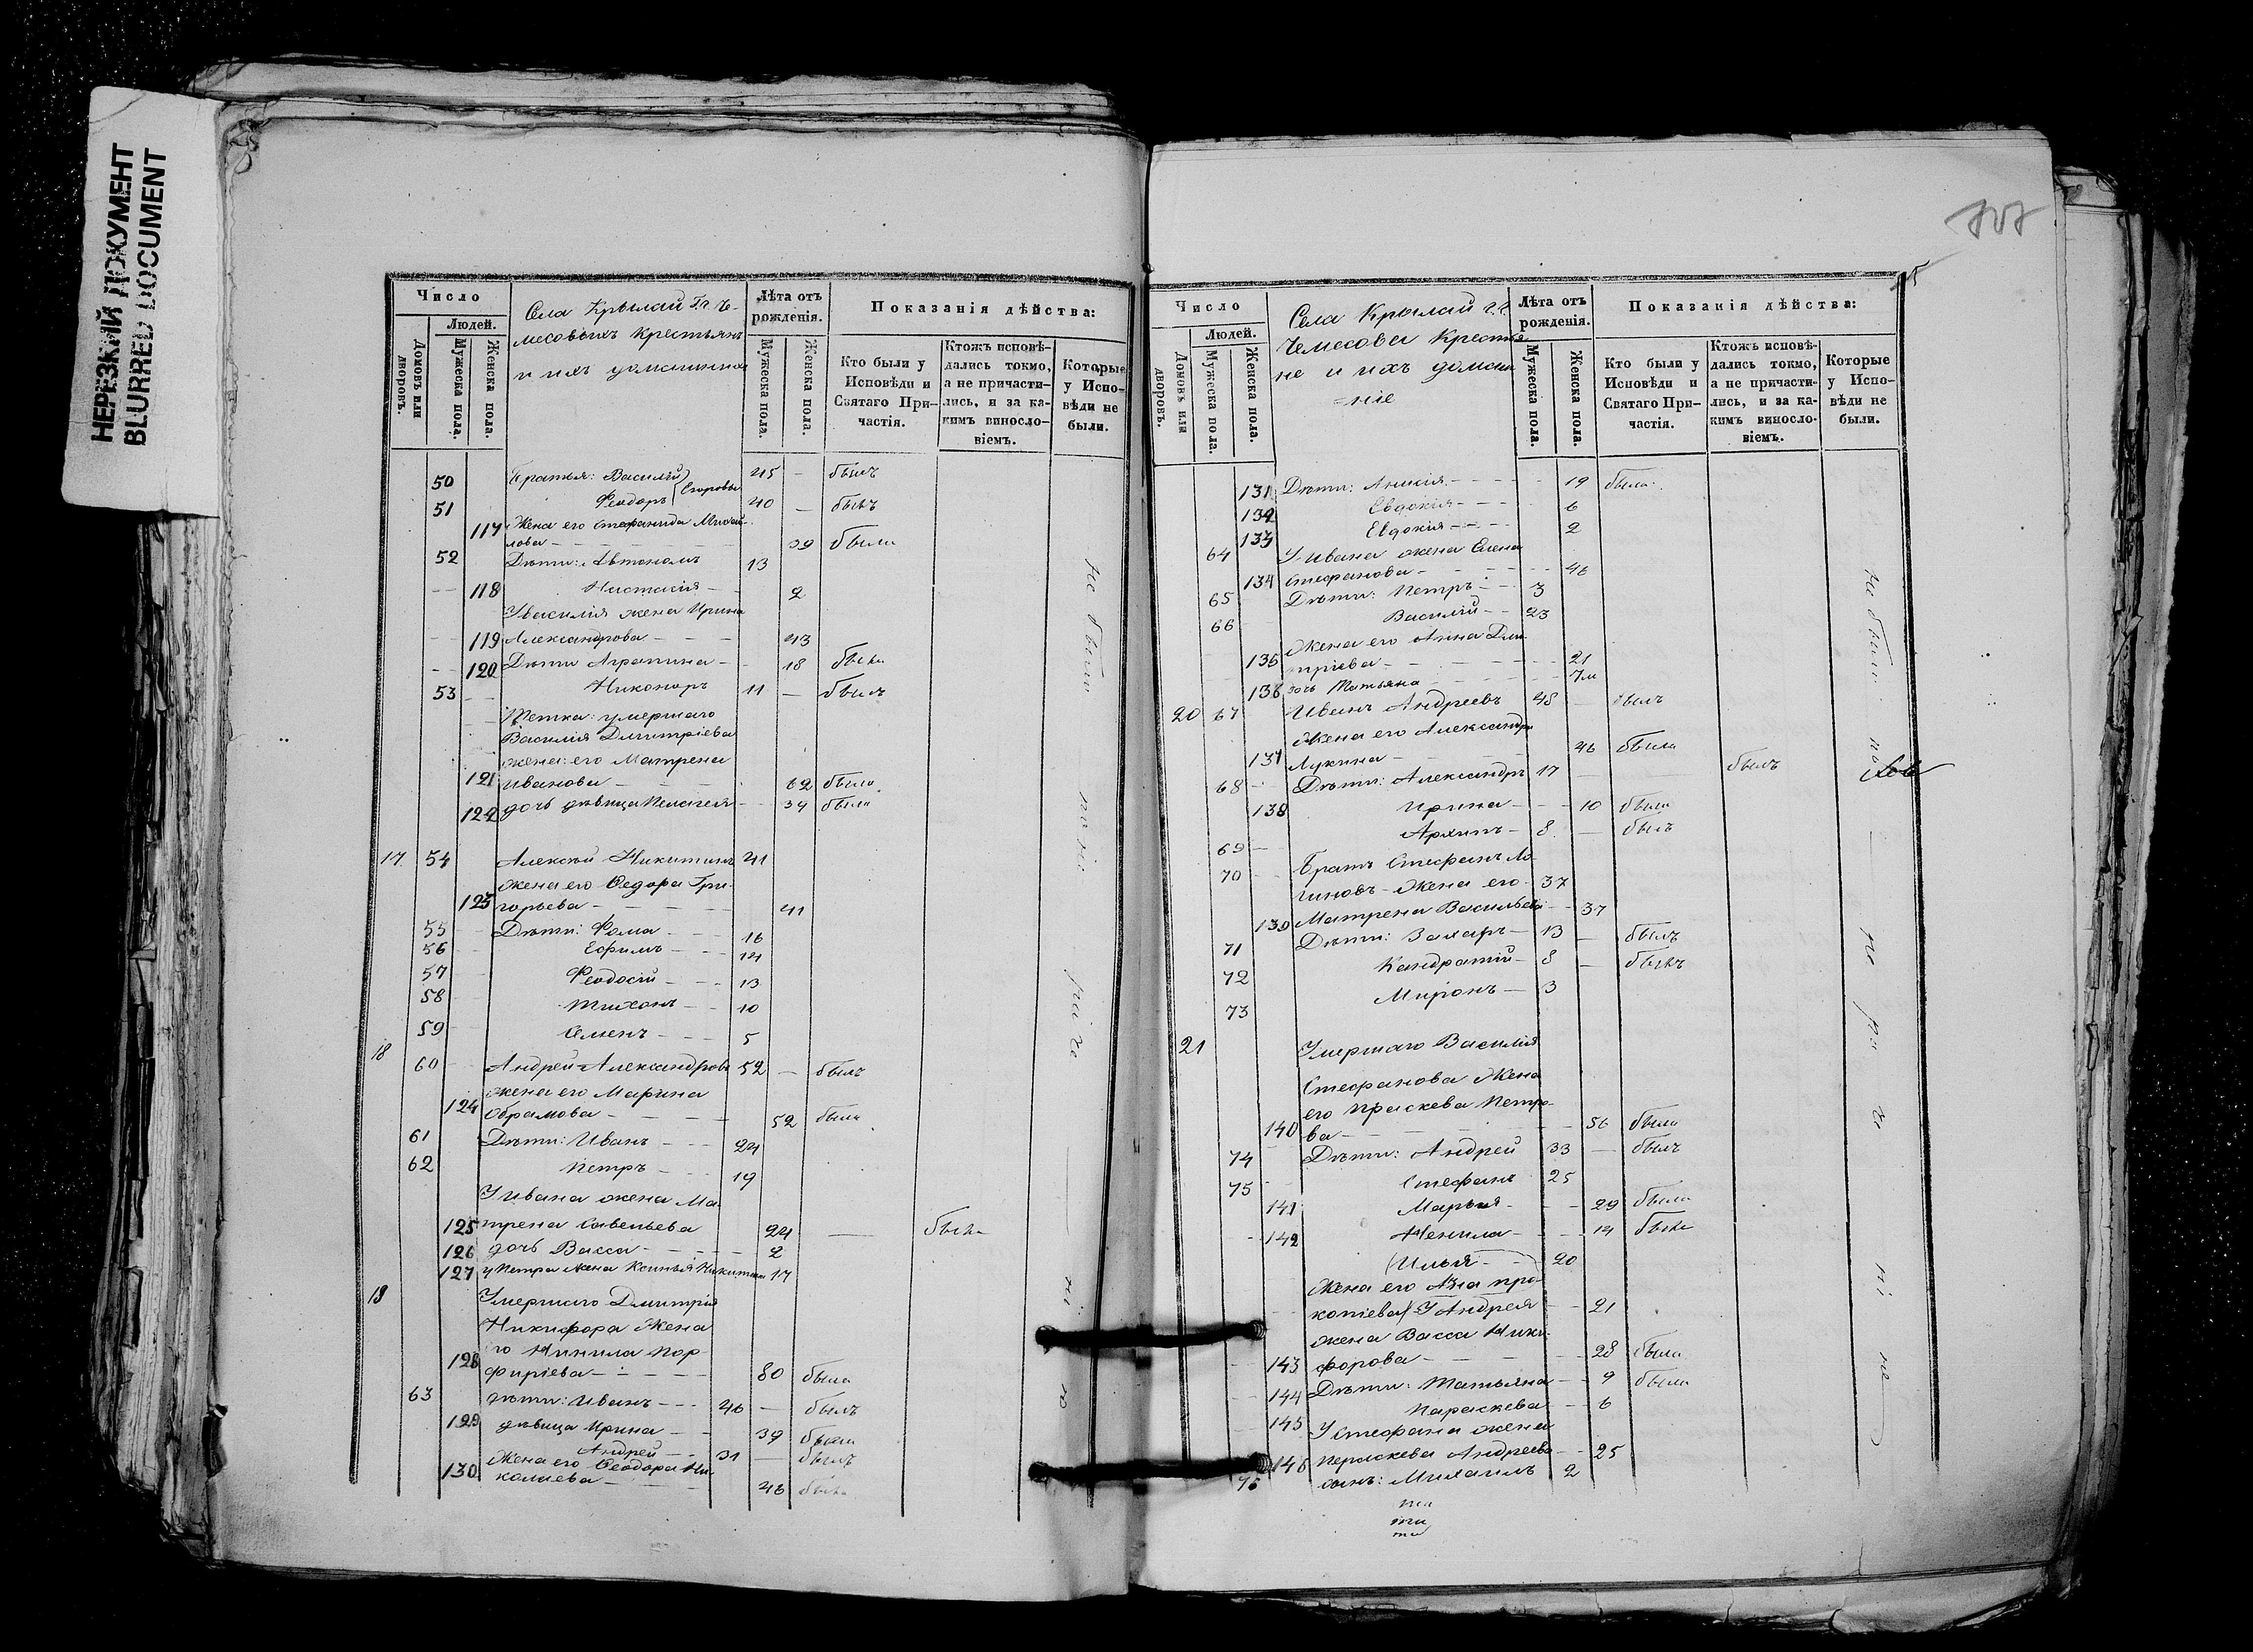 НЕРЕЗКИЙ ДОКУМЕНТ
BLURRED DOCUMENT
Число
Людей.
Домовъ или дворовъ.
Мужеска пола.
Женска пола.
Села Крылай Гг. Че-
месовыхъ Крестьянъ
и ихъ домашнихъ
Лѣта отъ рожденія.
Мужеска пола.
Женска пола.
Показанія дѣйства:
Кто были у Исповѣди и Святаго При-частія.
Ктожъ исповѣ-дались токмо, а не причасти-лись, и за ка-кимъ винословіемъ.
Которые у Испо-вѣди не были.
50 Братья: Василій 45 — былъ
Егоровы
51 Феодоръ 40 — былъ
Жена его Стефанида Михай-
117 лова 39 была
52 Дѣти: Автономъ 13
118 Настасія 2
У Василія жена Ирина
119 Александрова 43
120 Дѣти Агрипина 18 была
53 Никоноръ 11 — былъ
Тетка: умершаго
Василія Дмитріева
жена его Матрена
121 Иванова 62 была
122 дочь дѣвица Пелагея 34 была
17 54 Алексѣй Никитинъ 41
жена его Федора Гри-
123 горьева 41
55 Дѣти: Фома 16
56 Ефимъ 14
57 Феодосій 13
58 Тихонъ 10
59 Семенъ 5
18
60 Андрей Александровъ 52 — былъ
жена его Марина
124 Обрамова 52 была
61 Дѣти: Иванъ 24
62 Петръ 19
У Ивана жена Ма-
125 трена Савельева 24 — была
126 дочь Васса 2
127 у Петра жена Ксенья Никитина 17
19 Умершаго Дмитрія
Никифора Жена
его Ненила Пор-
128 фиріева 80 была
63 дѣти: Иванъ 46 — былъ
129 дѣвица Ирина 39 была
Андрей 31 — былъ
Жена его Феодора Ни-
130 колаева 46 была
5
Число
Людей.
Домовъ или дворовъ.
Мужеска пола.
Женска пола.
Села Крылай г.г.
Чемесова Крестья
не и ихъ домаш
=ніе
Лѣта отъ рожденія.
Мужеска пола.
Женска пола.
Показанія дѣйства:
Кто были у Исповѣди и Святаго При-частія.
Ктожъ исповѣ-дались токмо, а не причасти-лись, и за ка-кимъ винословіемъ.
Которые у Испо-вѣди не были.
131 Дѣти: Анисія 19 была
132 Евдокія 6
133 Евдокія 2
64 У Ивана жена Елена
134 Стефанова 46
65 Дѣти: Петръ 3
66 Василій 23
Жена его Анна Дми
135 тріева 21
136 дочь Татьяна 7м
20 67 Иванъ Андреевъ 48 — былъ
Жена его Александра
137 Лукина 46 была
68 Дѣти: Александръ 17 — былъ
138 Ирина 10 была
69 Архипъ 8 — былъ
70 Братъ Стефанъ Ло-
гиновъ Жена его 37
139 Матрена Васильева 37
71 Дѣти: Захаръ 13 — былъ
72 Кандратій 8 — былъ
73 Миронъ 3
21 Умершаго Василія
Стефанова Жена
его Праскева Петро-
140 ва 56 была
74 Дѣти: Андрей 33 — былъ
75 Стефанъ 25
141 Марья 29 была
142 Ненила 14 была
Илья 20
Жена его Анна про-
копіева У Андрея 21
жена Васса Ники-
143 форова 28 была
144 Дѣти: Татьяна 9 была
145 Параскева 6
У Стефана жена
146 Пераскева Андреева 25
76 сынъ: Михаилъ 2